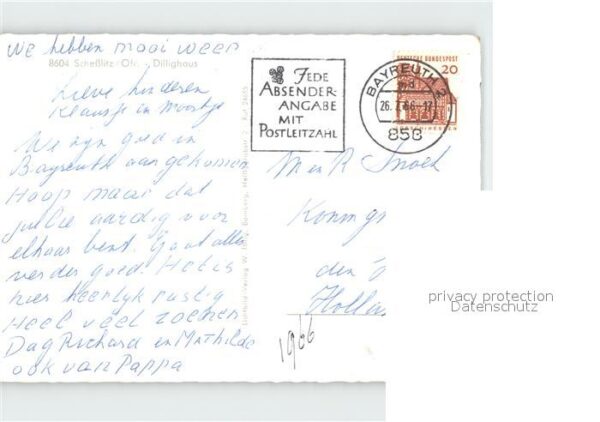 We hebben mooi weer
8604 Scheßlitz/Ofr. - Dillighaus
Lieve kinderen
Klaasje en
We zijn goed in
Bayreuth aangekomen
Hoop maar dat
jullie aardig voor
elkaar bent. Gaat alles
verder goed. Het is
hier heerlijk rustig
Heel veel zoenen
Dag Richard en Mathilde
ook van Pappa
JEDE
ABSENDER-
ANGABE
MIT
POSTLEITZAHL
BAYREUTH 2
26.7.66-17
858
DEUTSCHE BUNDESPOST
20
M en R Snoek
Konings
den
Hollan
1966
privacy protection
Datenschutz